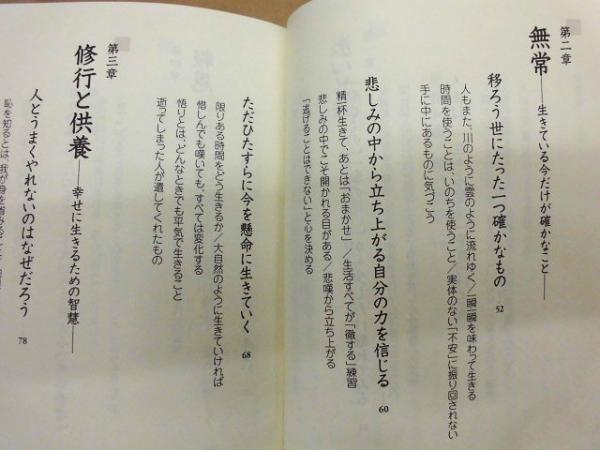 第二章
無常――生きている今だけが確かなこと――
移ろう世にたった一つ確かなもの 52
人もまた、川のように雲のように流れゆく／一瞬一瞬を味わって生きる
時間を使うことは、いのちを使うこと／実体のない「不安」に振り回されない
手に中にあるものに気づこう
悲しみの中から立ち上がる自分の力を信じる 60
精一杯生きて、あとは「おまかせ」／生活すべてが「徹する」練習
悲しみの中でこそ開かれる目がある／悲嘆から立ち上がる
「逃げることはできない」と心を決める
ただひたすらに今を懸命に生きていく 68
限りある時間をどう生きるか／大自然のように生きていければ
惜しんでも嘆いても、すべては変化する
悟りとは、どんなときでも平気で生きること
逝ってしまった人が遺してくれたもの
第三章
修行と供養――幸せに生きるための智慧――
人とうまくやれないのはなぜだろう 78
恥を知るとは、我が身を